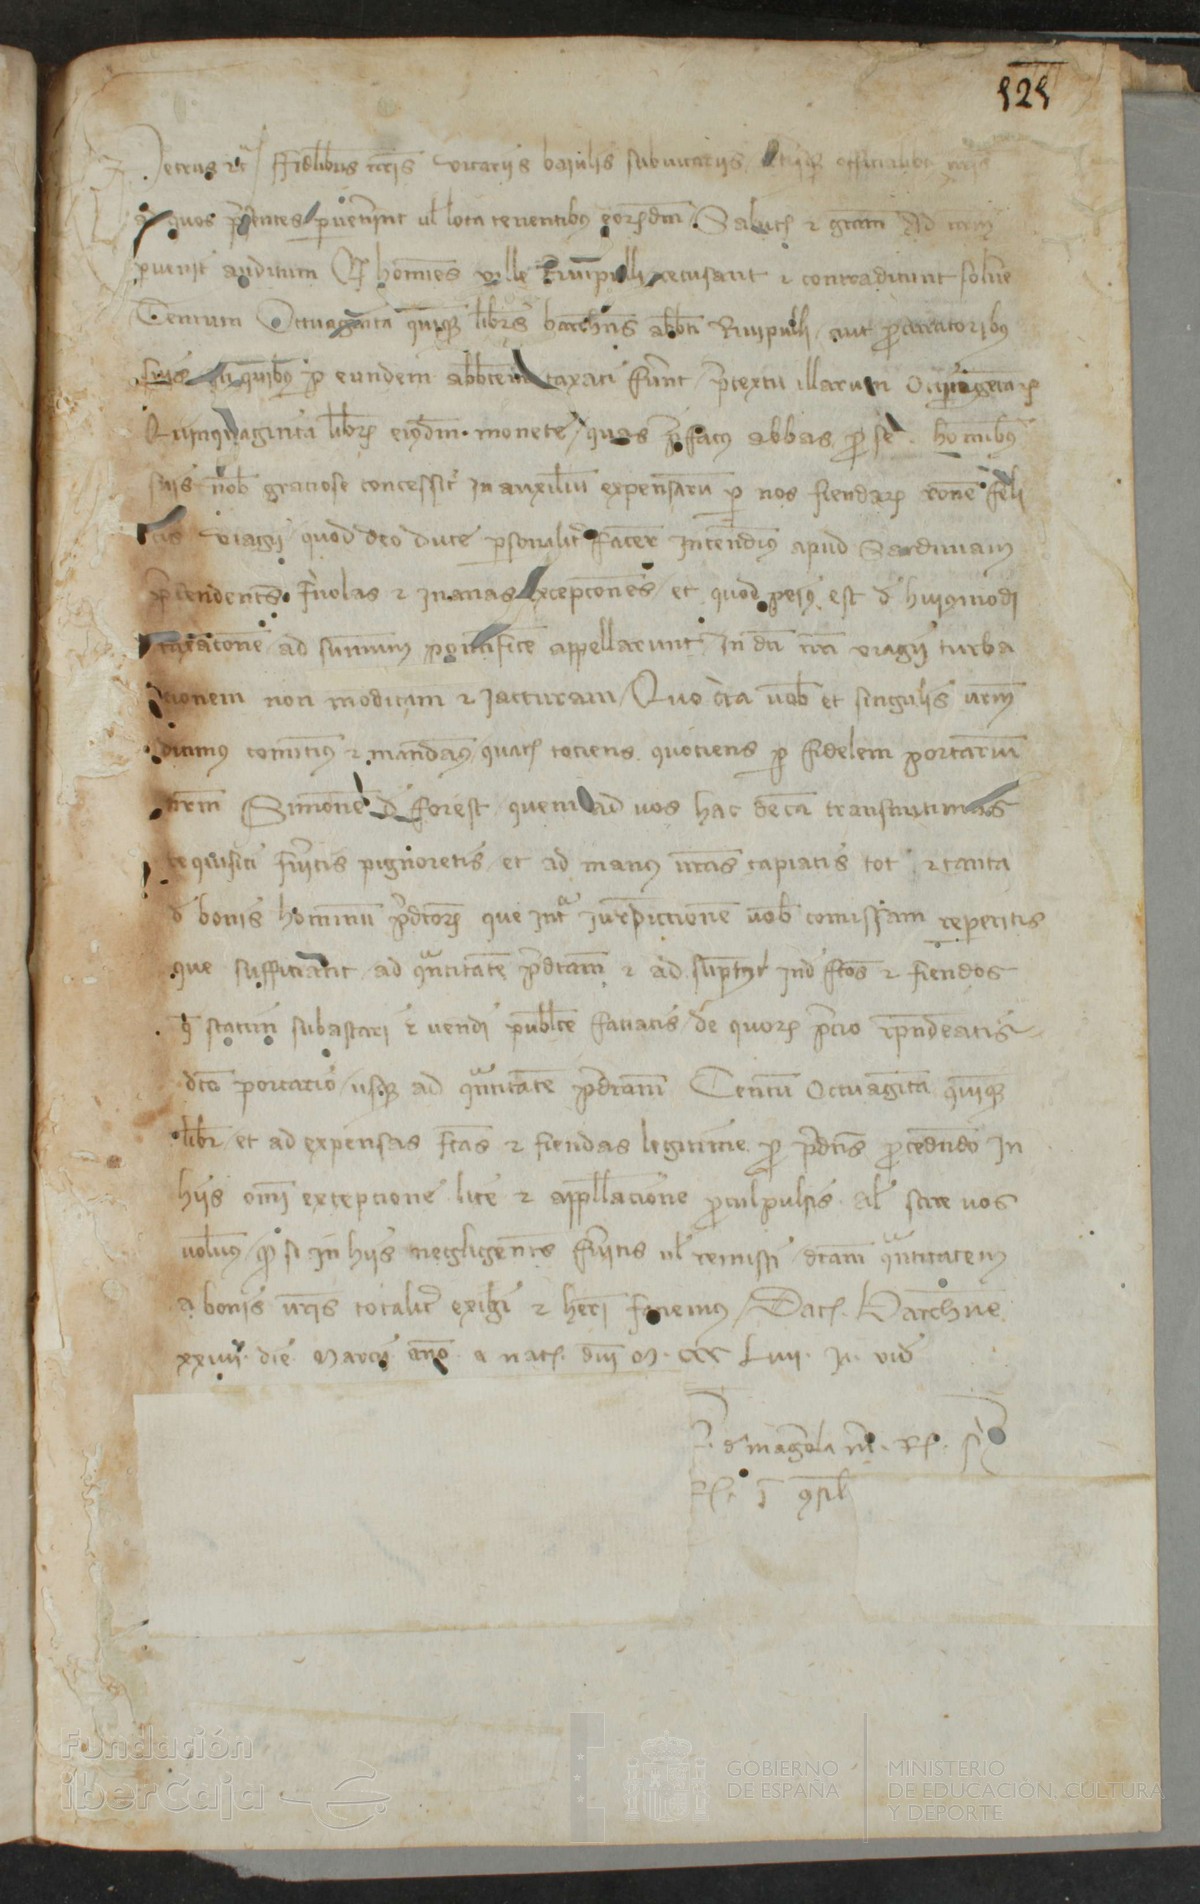 121
Petrus etc fidelibus nris vicariis baiulis subvicariis officialibus nris
ad quos pntes pervenerint vel loca tenentibus eorumdem Salutem et gratiam Ad nrm
pvenit auditum Qd homines ville Rivipulli recusant et contradicunt solvere
Centum Octuaginta quinque libras barchns abbati Rivipulli aut procuratoribus
suis in quibus per eundem abbatem taxati fuerunt pretextu illarum
Quinquaginta librarum eiusdem monete quas prefatus abbas pro se hominibus
suis nob graciose concessit in auxilium expensarum per nos fiendarum racone feli
cis viagii quod deo duce personaliter facere intendimus apud Sardiniam
pretendentes frivolas et inanas excepcones et quod peius est de huiusmodi
taxacone ad summum pontificem appellarunt In dicti nri viagii turba
cionem non modicam et iacturam Quo circa vob et singulis vrm
dicimus comittimus et mandamus quatenus tociens quociens per fidelem portarium
nrm Simonem de forest quem ad vos hac de causa transmittimus
requisiti fueritis pignoretis et ad manus vras capiatis tot et tanta
de bonis hominum predictorum que infra iurisdiccionem vob comissam reperitis
que sufficiant ad quantitatem predictam et ad sumptus inde factos et fiendos
statim subastari et vendi publice faciatis de quorum precio respondeatis
dicto portario usque ad quantitatem predictam Centum Octuaginta quinque
libr et ad expensas factas et fiendas legitime pro predictis procedendo in
hiis omni excepcione lite et appellacione proculpulsis Al scire vos
volumus qd si in hiis negligentes fueritis vel remissi dictam quantitatem
a bonis vris totaliter exigi et heri faciemus Dat Barchne
xxiiii die Marcii anno a nat dni M CCC Liiii